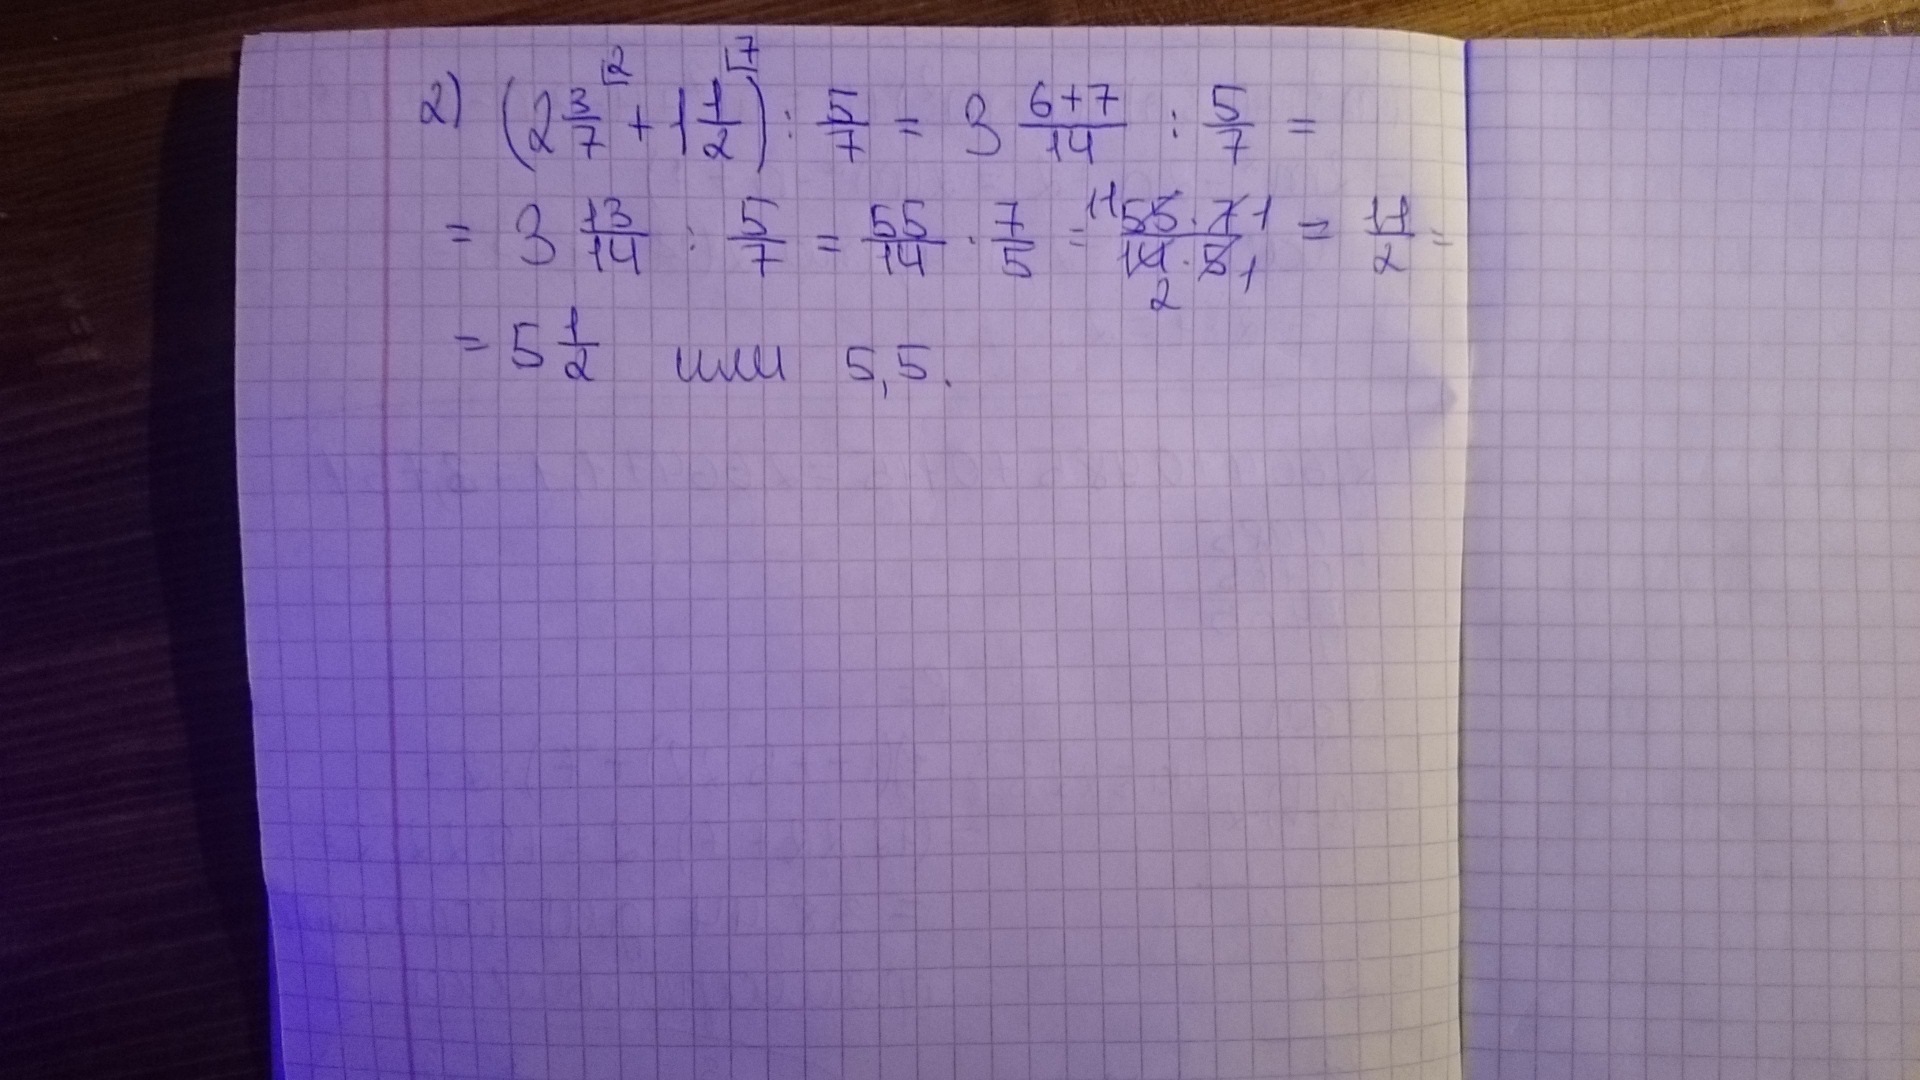 2) (2 3/7 ⌊2 + 1 1/2 ⌊7) : 5/7 = 3 6+7/14 : 5/7 =
= 3 13/14 : 5/7 = 55/14 · 7/5 = 11 55 · 7 1/14 · 5 1 2 = 11/2 =
= 5 1/2 или 5,5.